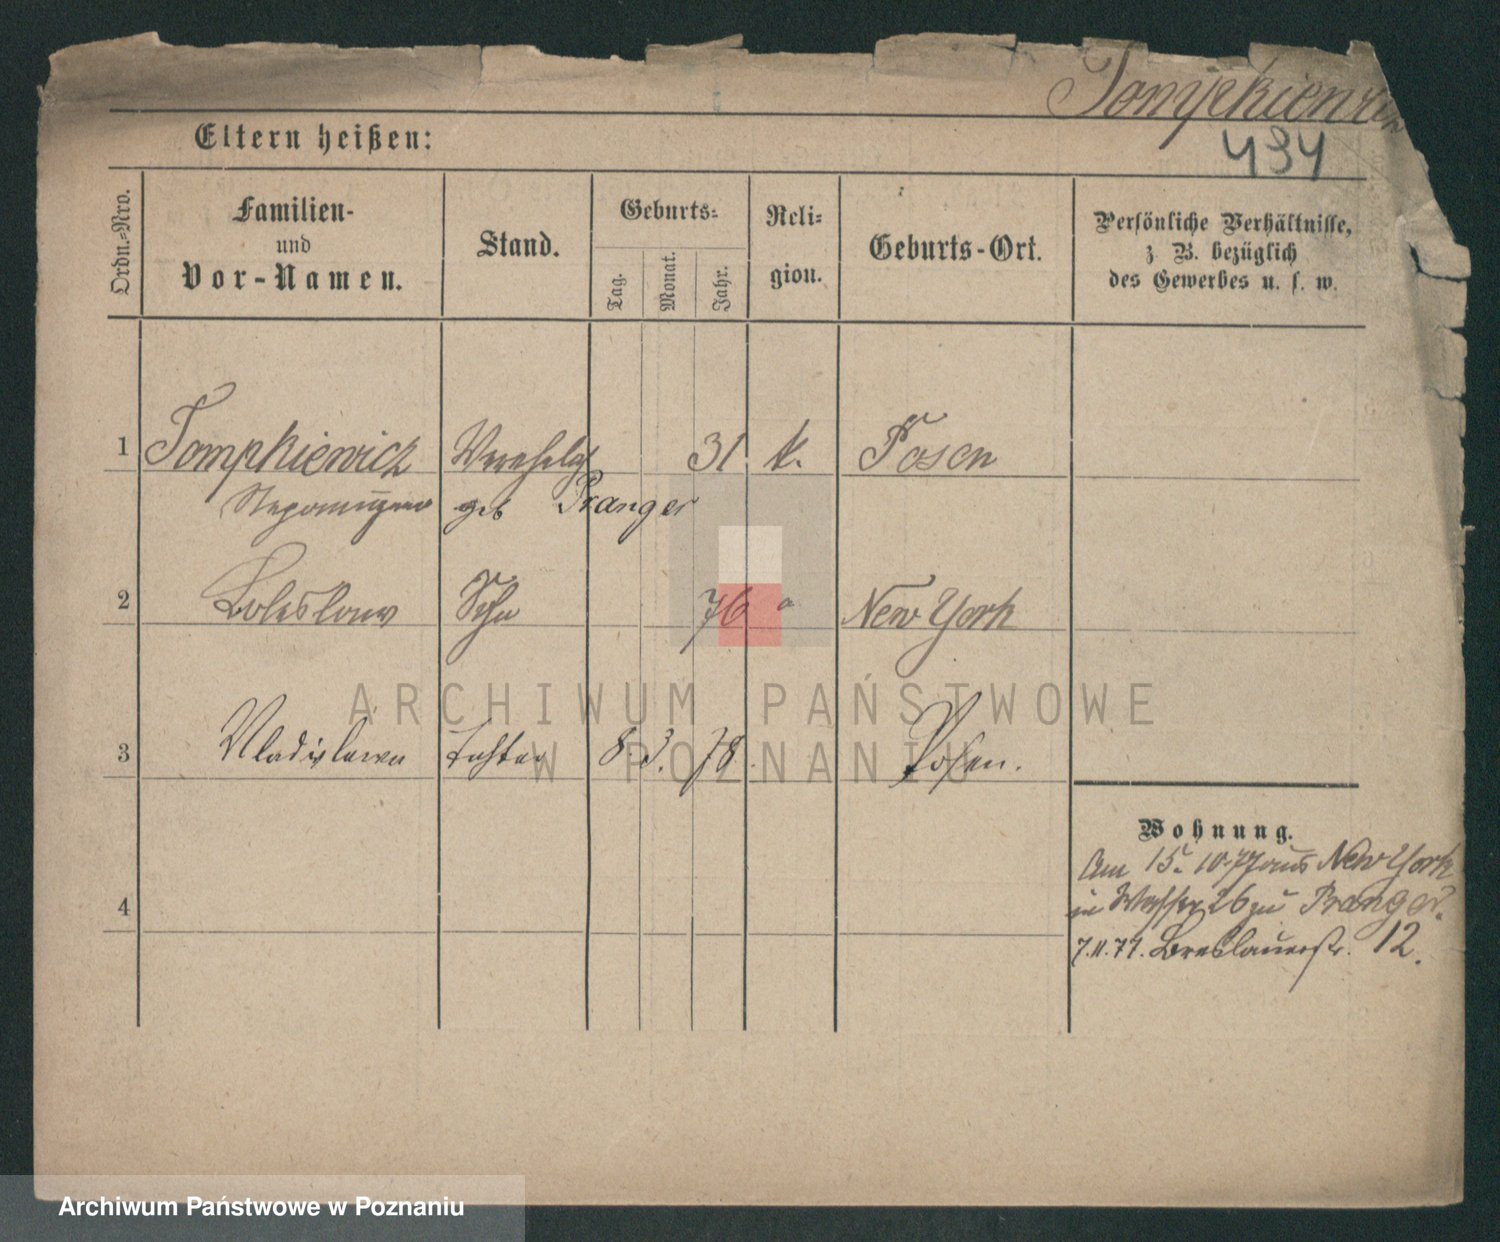 Tompkiewicz
434
Eltern heißen:
Ordn.-Nro.
Familien- und Vor-Namen.
Stand.
Geburts-
Tag. Monat. Jahr.
Reli-
gion.
Geburts-Ort.
Persönliche Verhältnisse,
z. B. bezüglich
des Gewerbes u. s. w.
1 Tompkiewicz 31 k. Posen
geb Pranger
2 Boleslaw Sohn 76 " New York
3 Vladislawa Tochter 8. 3. 78. Posen.
4
Wohnung.
Am 15. 10. 77 aus New York
in 26 zu Pranger.
7. 11. 77. Breslauerstr. 12.
ARCHIWUM PAŃSTWOWE
W POZNANIU
Archiwum Państwowe w Poznaniu